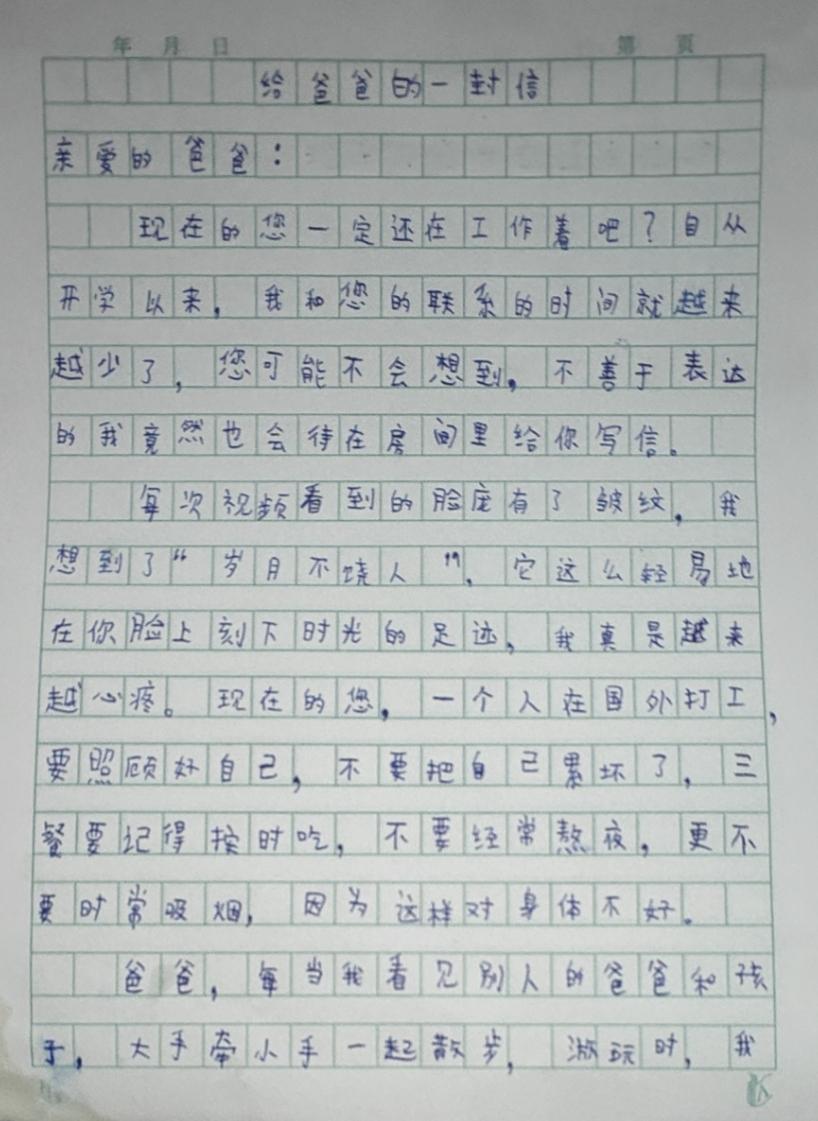 年 月 日 第 页
给爸爸的一封信
亲爱的爸爸：
现在的您一定还在工作着吧？自从
开学以来，我和您的联系的时间就越来
越少了，您可能不会想到，不善于表达
的我竟然也会待在房间里给你写信。
每次视频看到的脸庞有了皱纹，我
想到了“岁月不饶人”，它这么轻易地
在你脸上刻下时光的足迹，我真是越来
越心疼。现在的您，一个人在国外打工，
要照顾好自己，不要把自己累坏了，三
餐要记得按时吃，不要经常熬夜，更不
要时常吸烟，因为这样对身体不好。
爸爸，每当我看见别人的爸爸和孩
子，大手牵小手一起散步，游玩时，我